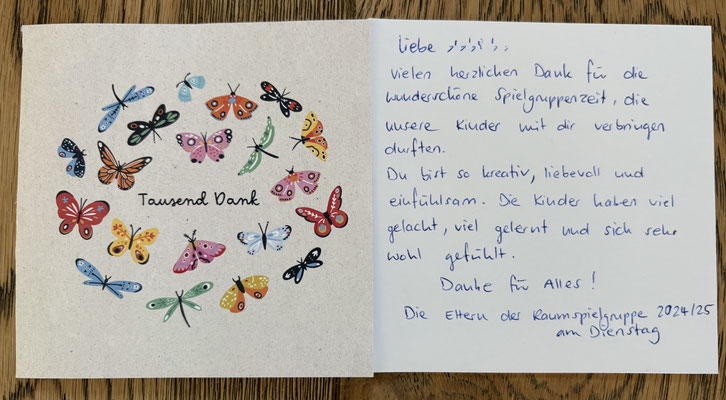 Tausend Dank
Liebe
vielen herzlichen Dank für die
wunderschöne Spielgruppenzeit, die
unsere Kinder mit dir verbringen
durften.
Du bist so kreativ, liebevoll und
einfühlsam. Die Kinder haben viel
gelacht, viel gelernt und sich sehr
wohl gefühlt.
Danke für Alles!
Die Eltern der Raumspielgruppe 2024/25
am Dienstag